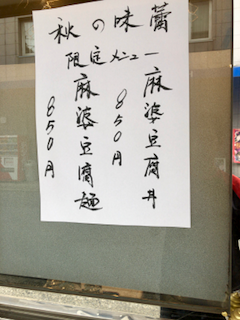 秋の味蕾
限定メニュー
麻婆豆腐丼
850円
麻婆豆腐麺
850円